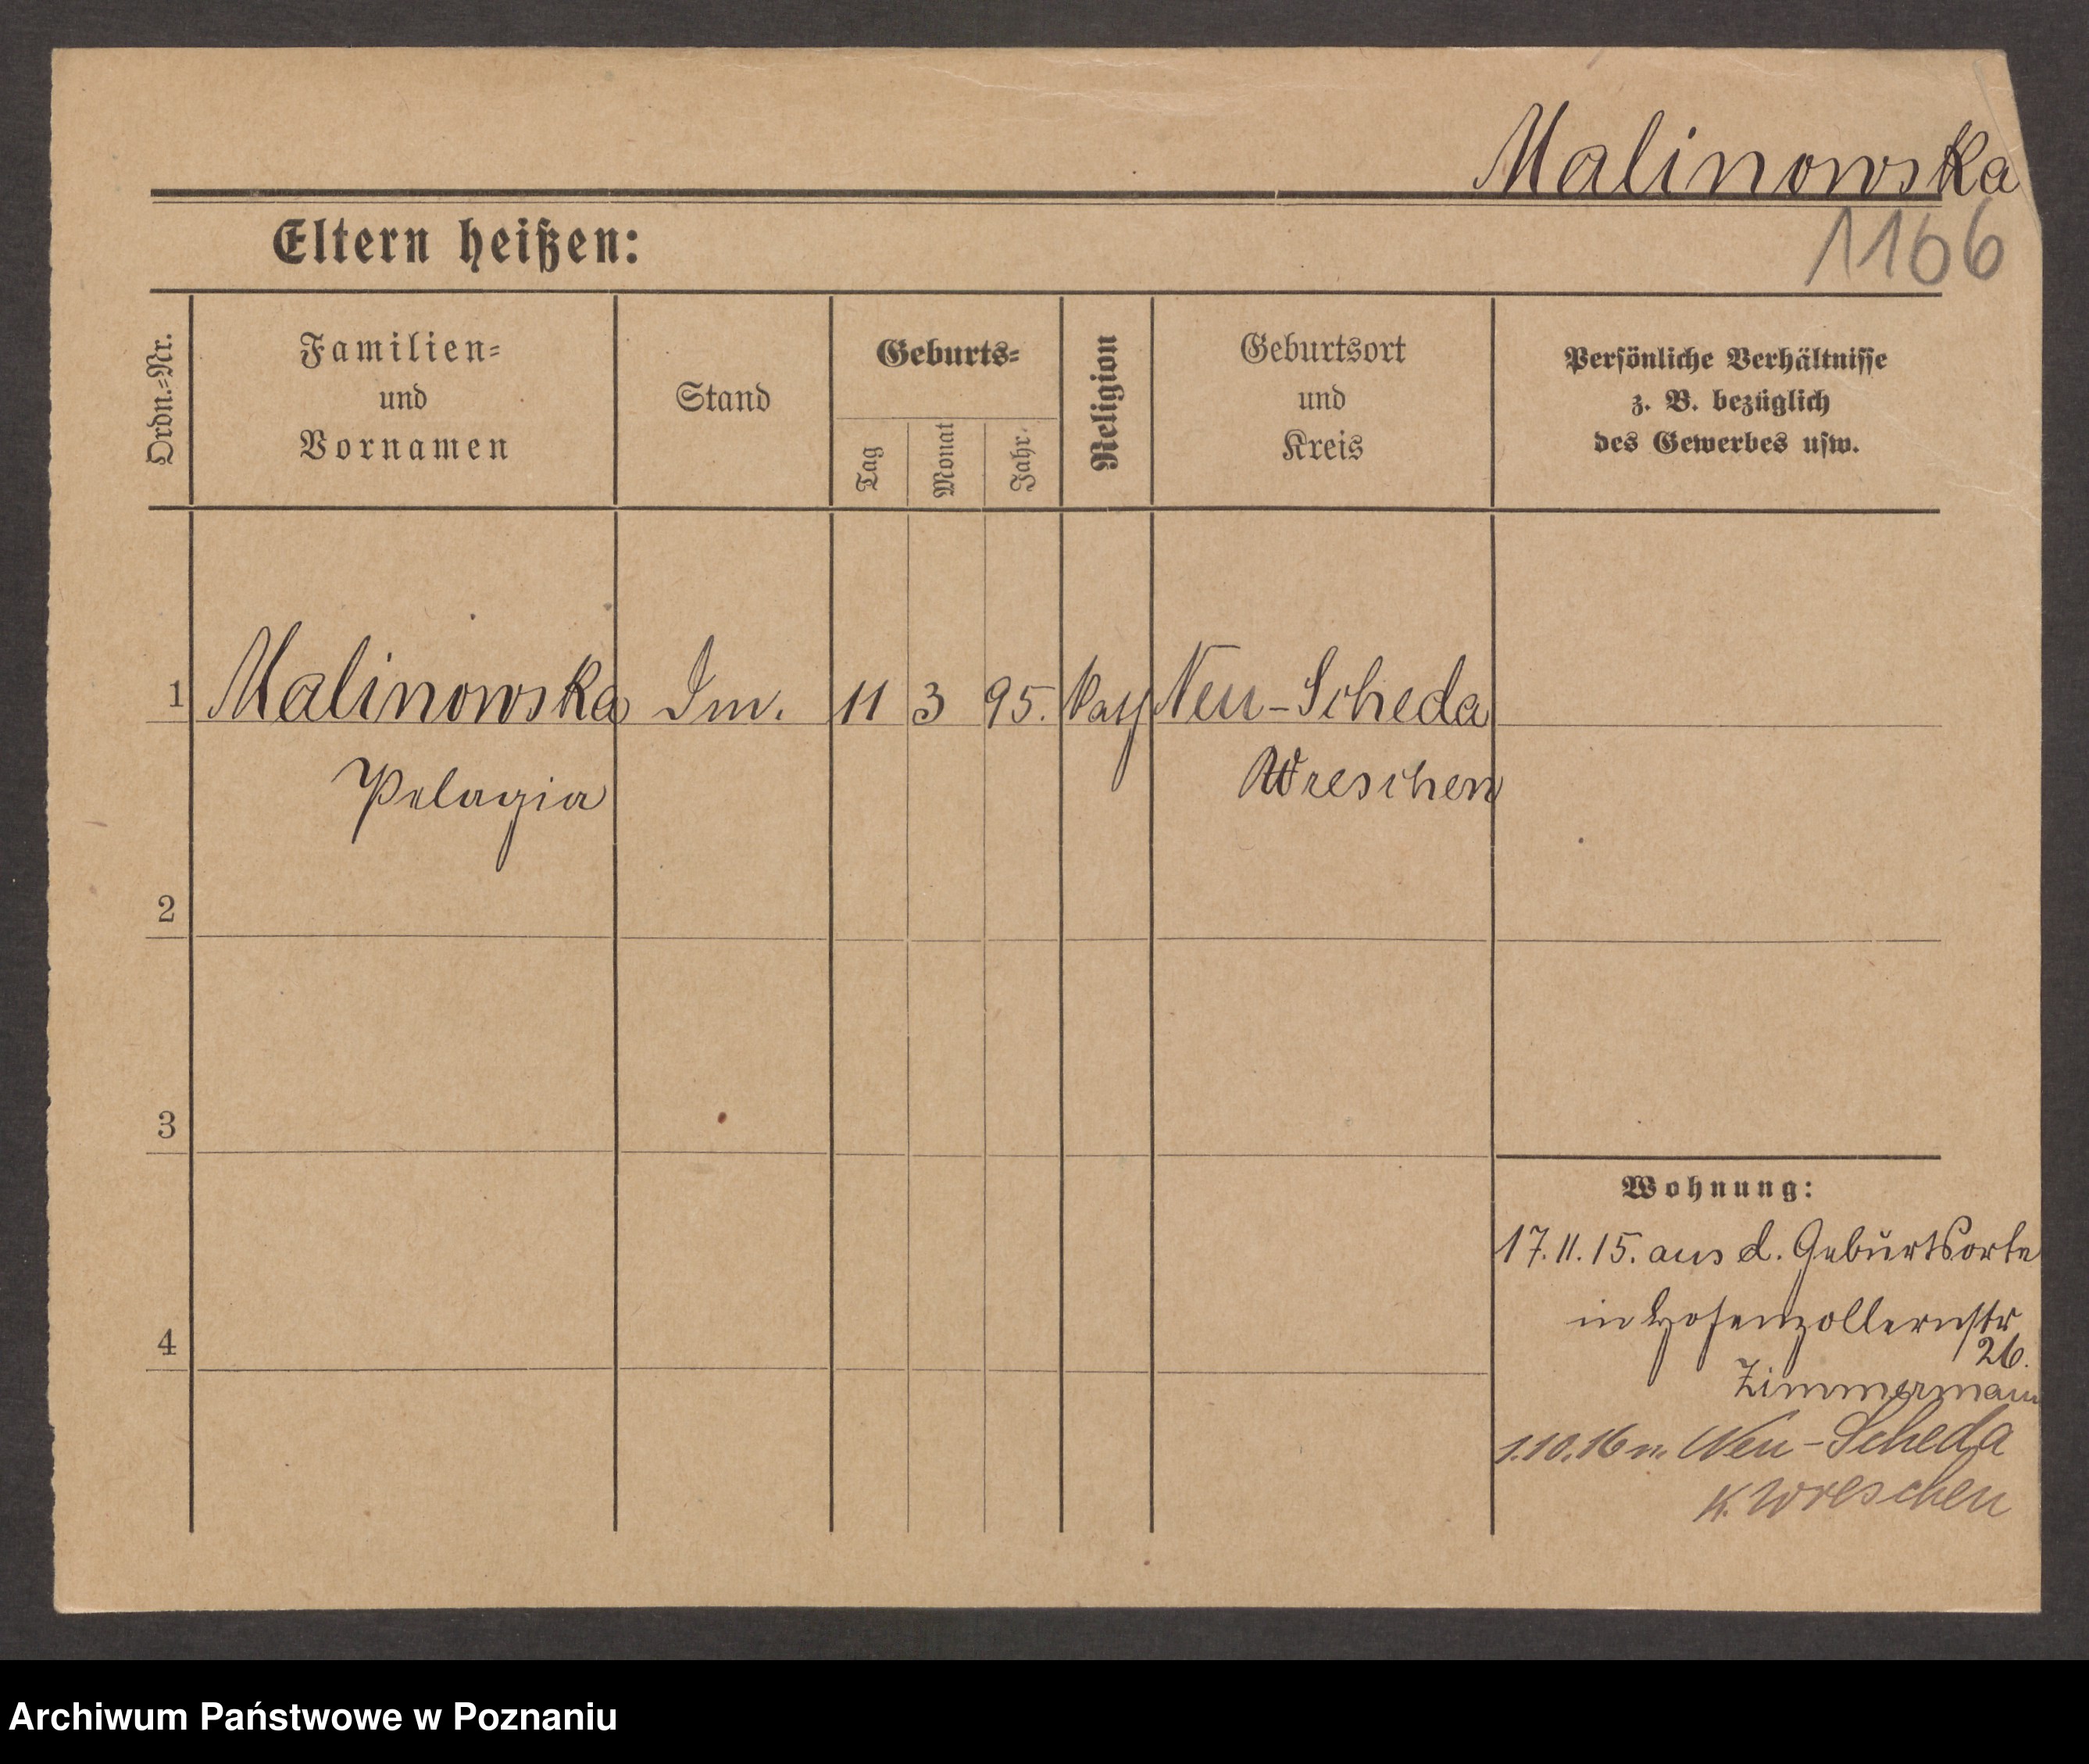 Malinowska
1166
Eltern heißen:
Ordn.=Nr.
Familien=
und
Vornamen
Stand
Geburts=
Tag
Monat
Jahr
Religion
Geburtsort
und
Kreis
Persönliche Verhältnisse
z. B. bezüglich
des Gewerbes usw.
1 Malinowska 11 3 95. Neu-Scheda
Pelagia Wreschen
2
3
4
Wohnung:
17. 11. 15. aus d. Geburtsorte
in Hohenzollernstr
26.
Zimmermann
1.10.16 n. Neu-Scheda
K. Wreschen
Archiwum Państwowe w Poznaniu